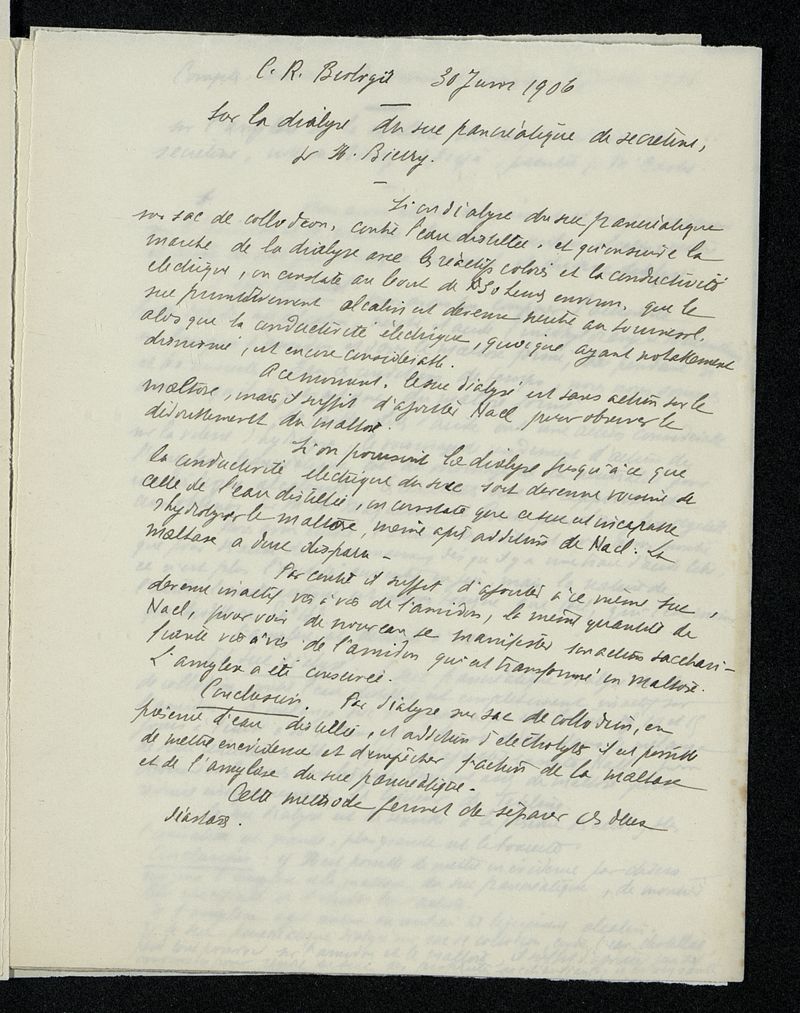 C. R. Biologie 30 Juin 1906
Sur la dialyse du suc pancréatique de secretine,
pr H. Bierry.
Si on dialyse du suc pancréatique
sur sac de collodion, contre l'eau distillée, et qu'on suive la
marche de la dialyse avec les réactifs colorés et la conductivité
electrique, on constate au bout de 50 heures environ, que le
suc primitivement alcalin est devenu neutre au tournesol,
alors que la conductivité électrique, quoique ayant notablement
diminué, est encore considérable.
A ce moment, le suc dialysé est sans action sur le
maltose, mais il suffit d'ajouter NaCl pour observer le
dédoublement du maltose.
Si on poursuit la dialyse jusqu'à ce que
la conductivité électrique du suc soit devenue voisine de
celle de l'eau distillée, on constate que ce suc est incapable
d'hydrolyser le maltose, même après addition de NaCl. La
maltase a donc disparu -
Par contre il suffit d'ajouter à ce même suc,
devenu inactif vis à vis de l'amidon, la même quantité de
NaCl, pour voir de nouveau se manifester son action sacchari-
fiante vis à vis de l'amidon qui est transformé en maltose.
L'amylase a été conservée.
Conclusion. Par dialyse sur sac de collodion, en
présence d'eau distillée, et addition d'electrolytes il est possible
de mettre en évidence et d'empêcher l'action de la maltase
et de l'amylase du suc pancréatique.
Cette methode permet de séparer ces deux
diastases.